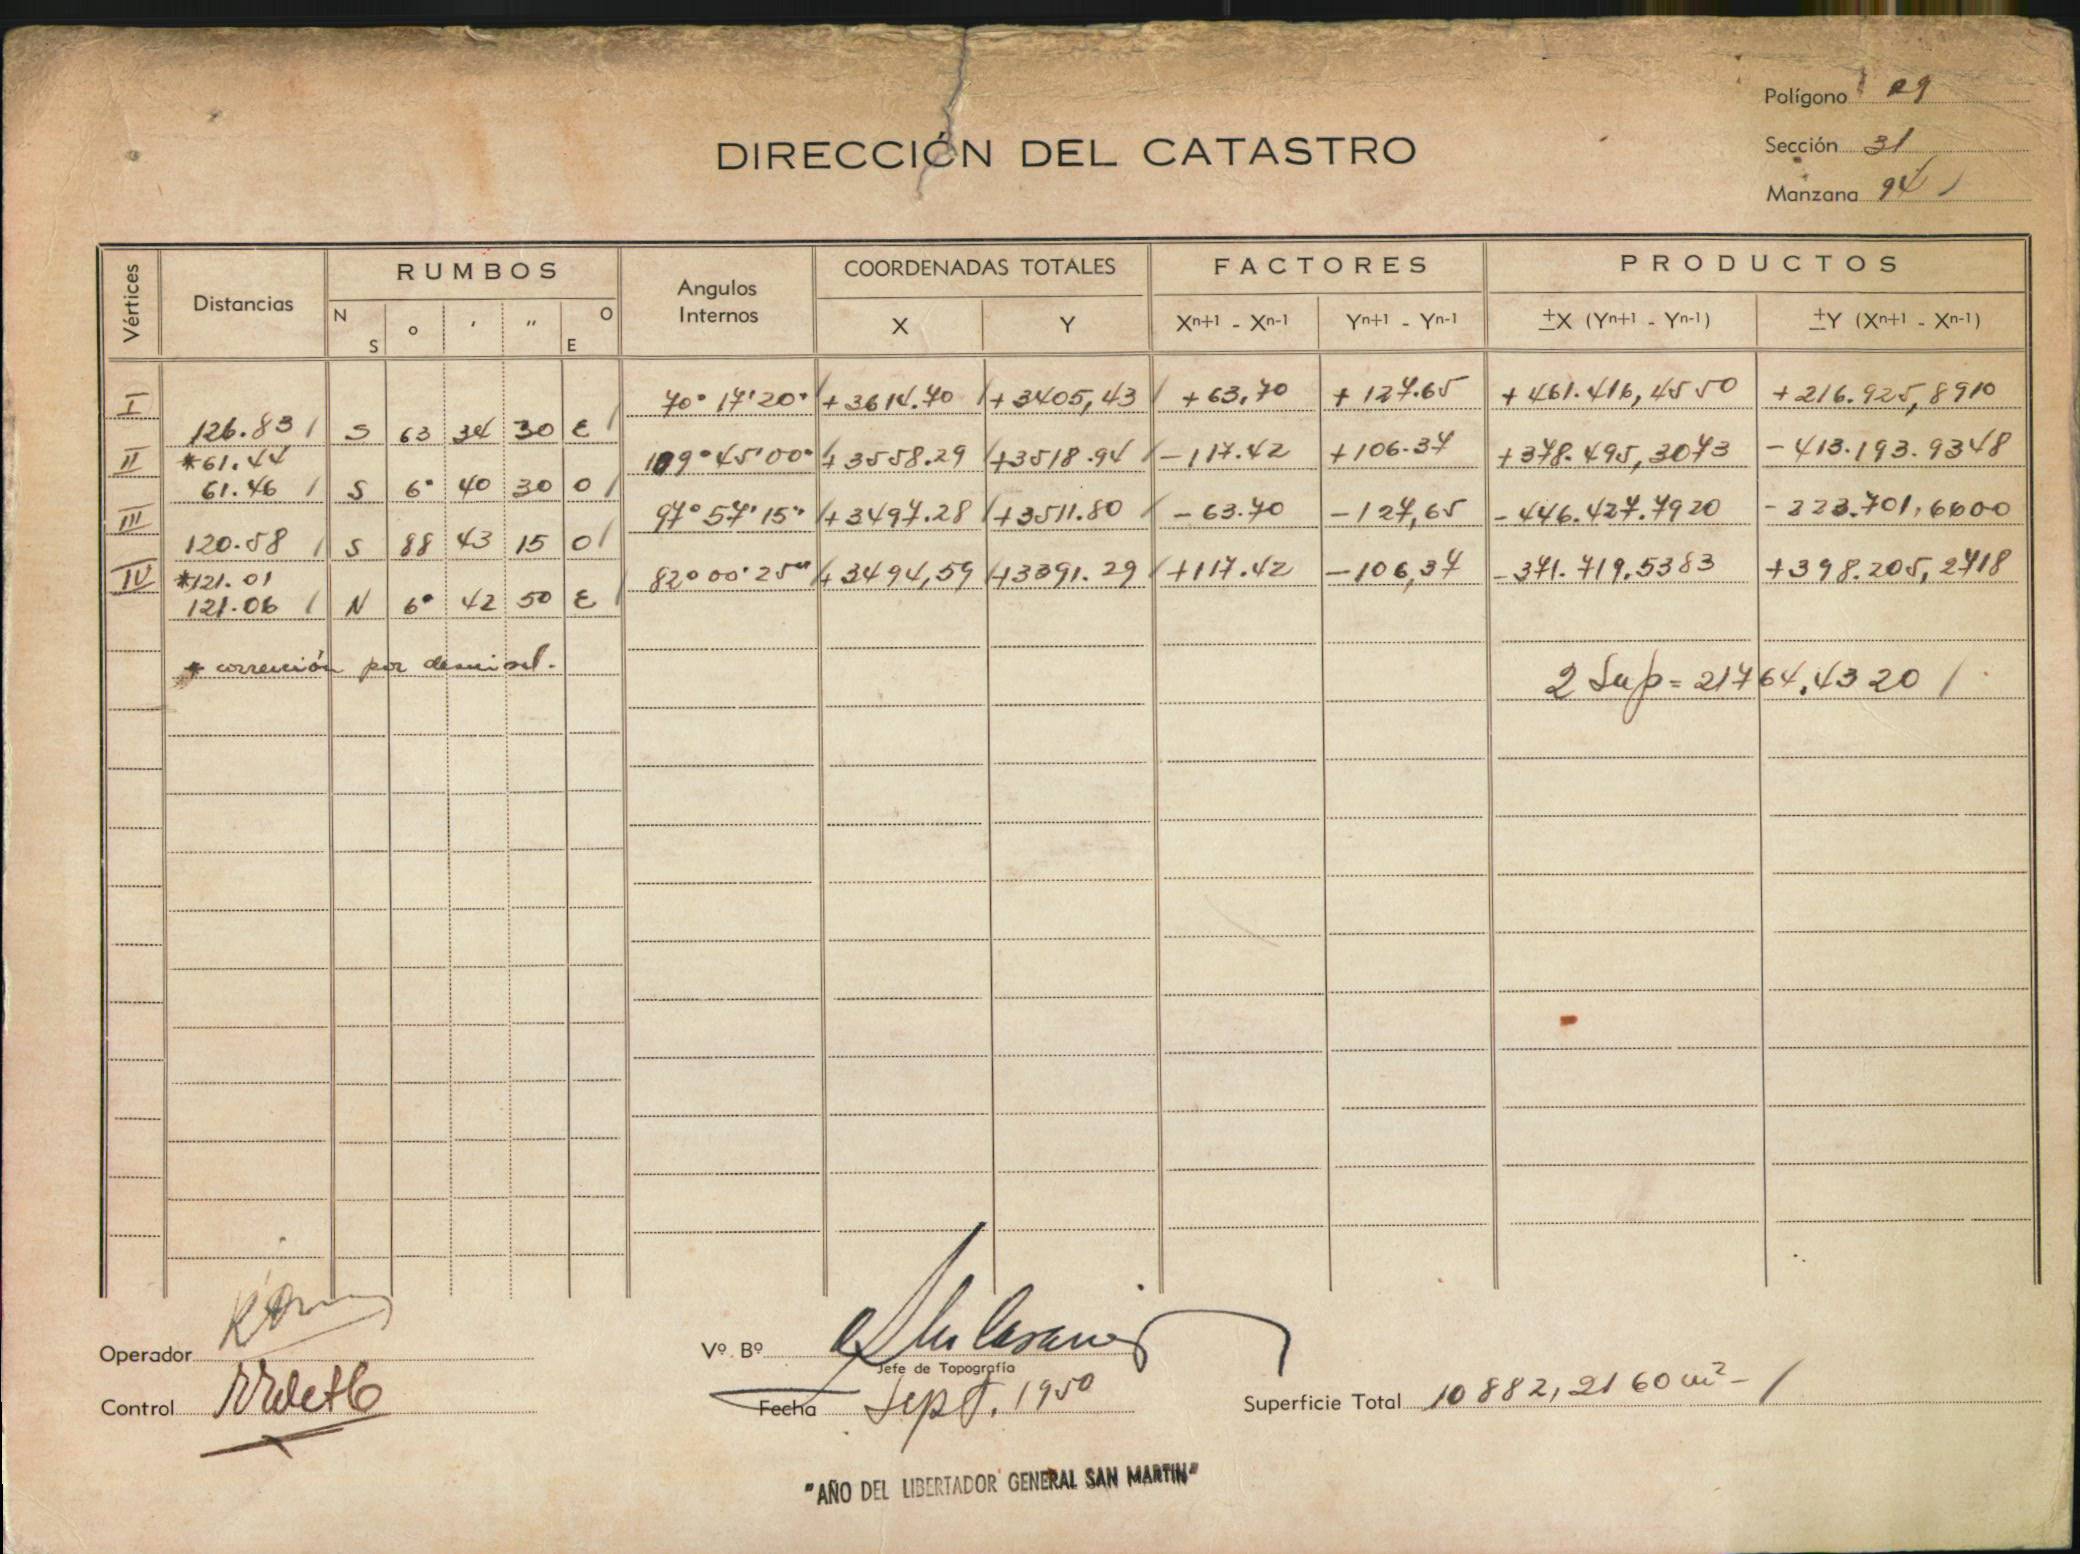 Polígono 29
DIRECCIÓN DEL CATASTRO
Sección 31
Manzana 94
Vértices
Distancias
RUMBOS
N S ° ' " O E
Angulos Internos
COORDENADAS TOTALES
X Y
FACTORES
Xn+1 - Xn-1 Yn+1 - Yn-1
PRODUCTOS
±X (Yn+1 - Yn-1) ±Y (Xn+1 - Xn-1)
I 70° 17' 20" +3614.70 +3405,43 +63,70 +127.65 +461.416,4550 +216.925,8910
126.83 S 63 34 30 E
II *61.44 109° 45' 00" +3558.29 +3518.94 -117.42 +106.37 +378.495,3073 -413.193.9348
61.46 S 6° 40 30 O
III 97° 57' 15" +3497.28 +3511.80 -63.70 -127,65 -446.427.7920 -223.701,6600
120.58 S 88 43 15 O
IV *121.01 82° 00' 25" +3494,59 +3391.29 +117.42 -106,37 -371.719.5383 +398.205,2718
121.06 N 6° 42 50 E
* corrección por desnivel.
2 Sup = 21764.4320
Operador
Vº Bº
Jefe de Topografía
Control
Fecha Sept. 1950
Superficie Total 10882,2160 m² -
"AÑO DEL LIBERTADOR GENERAL SAN MARTIN"